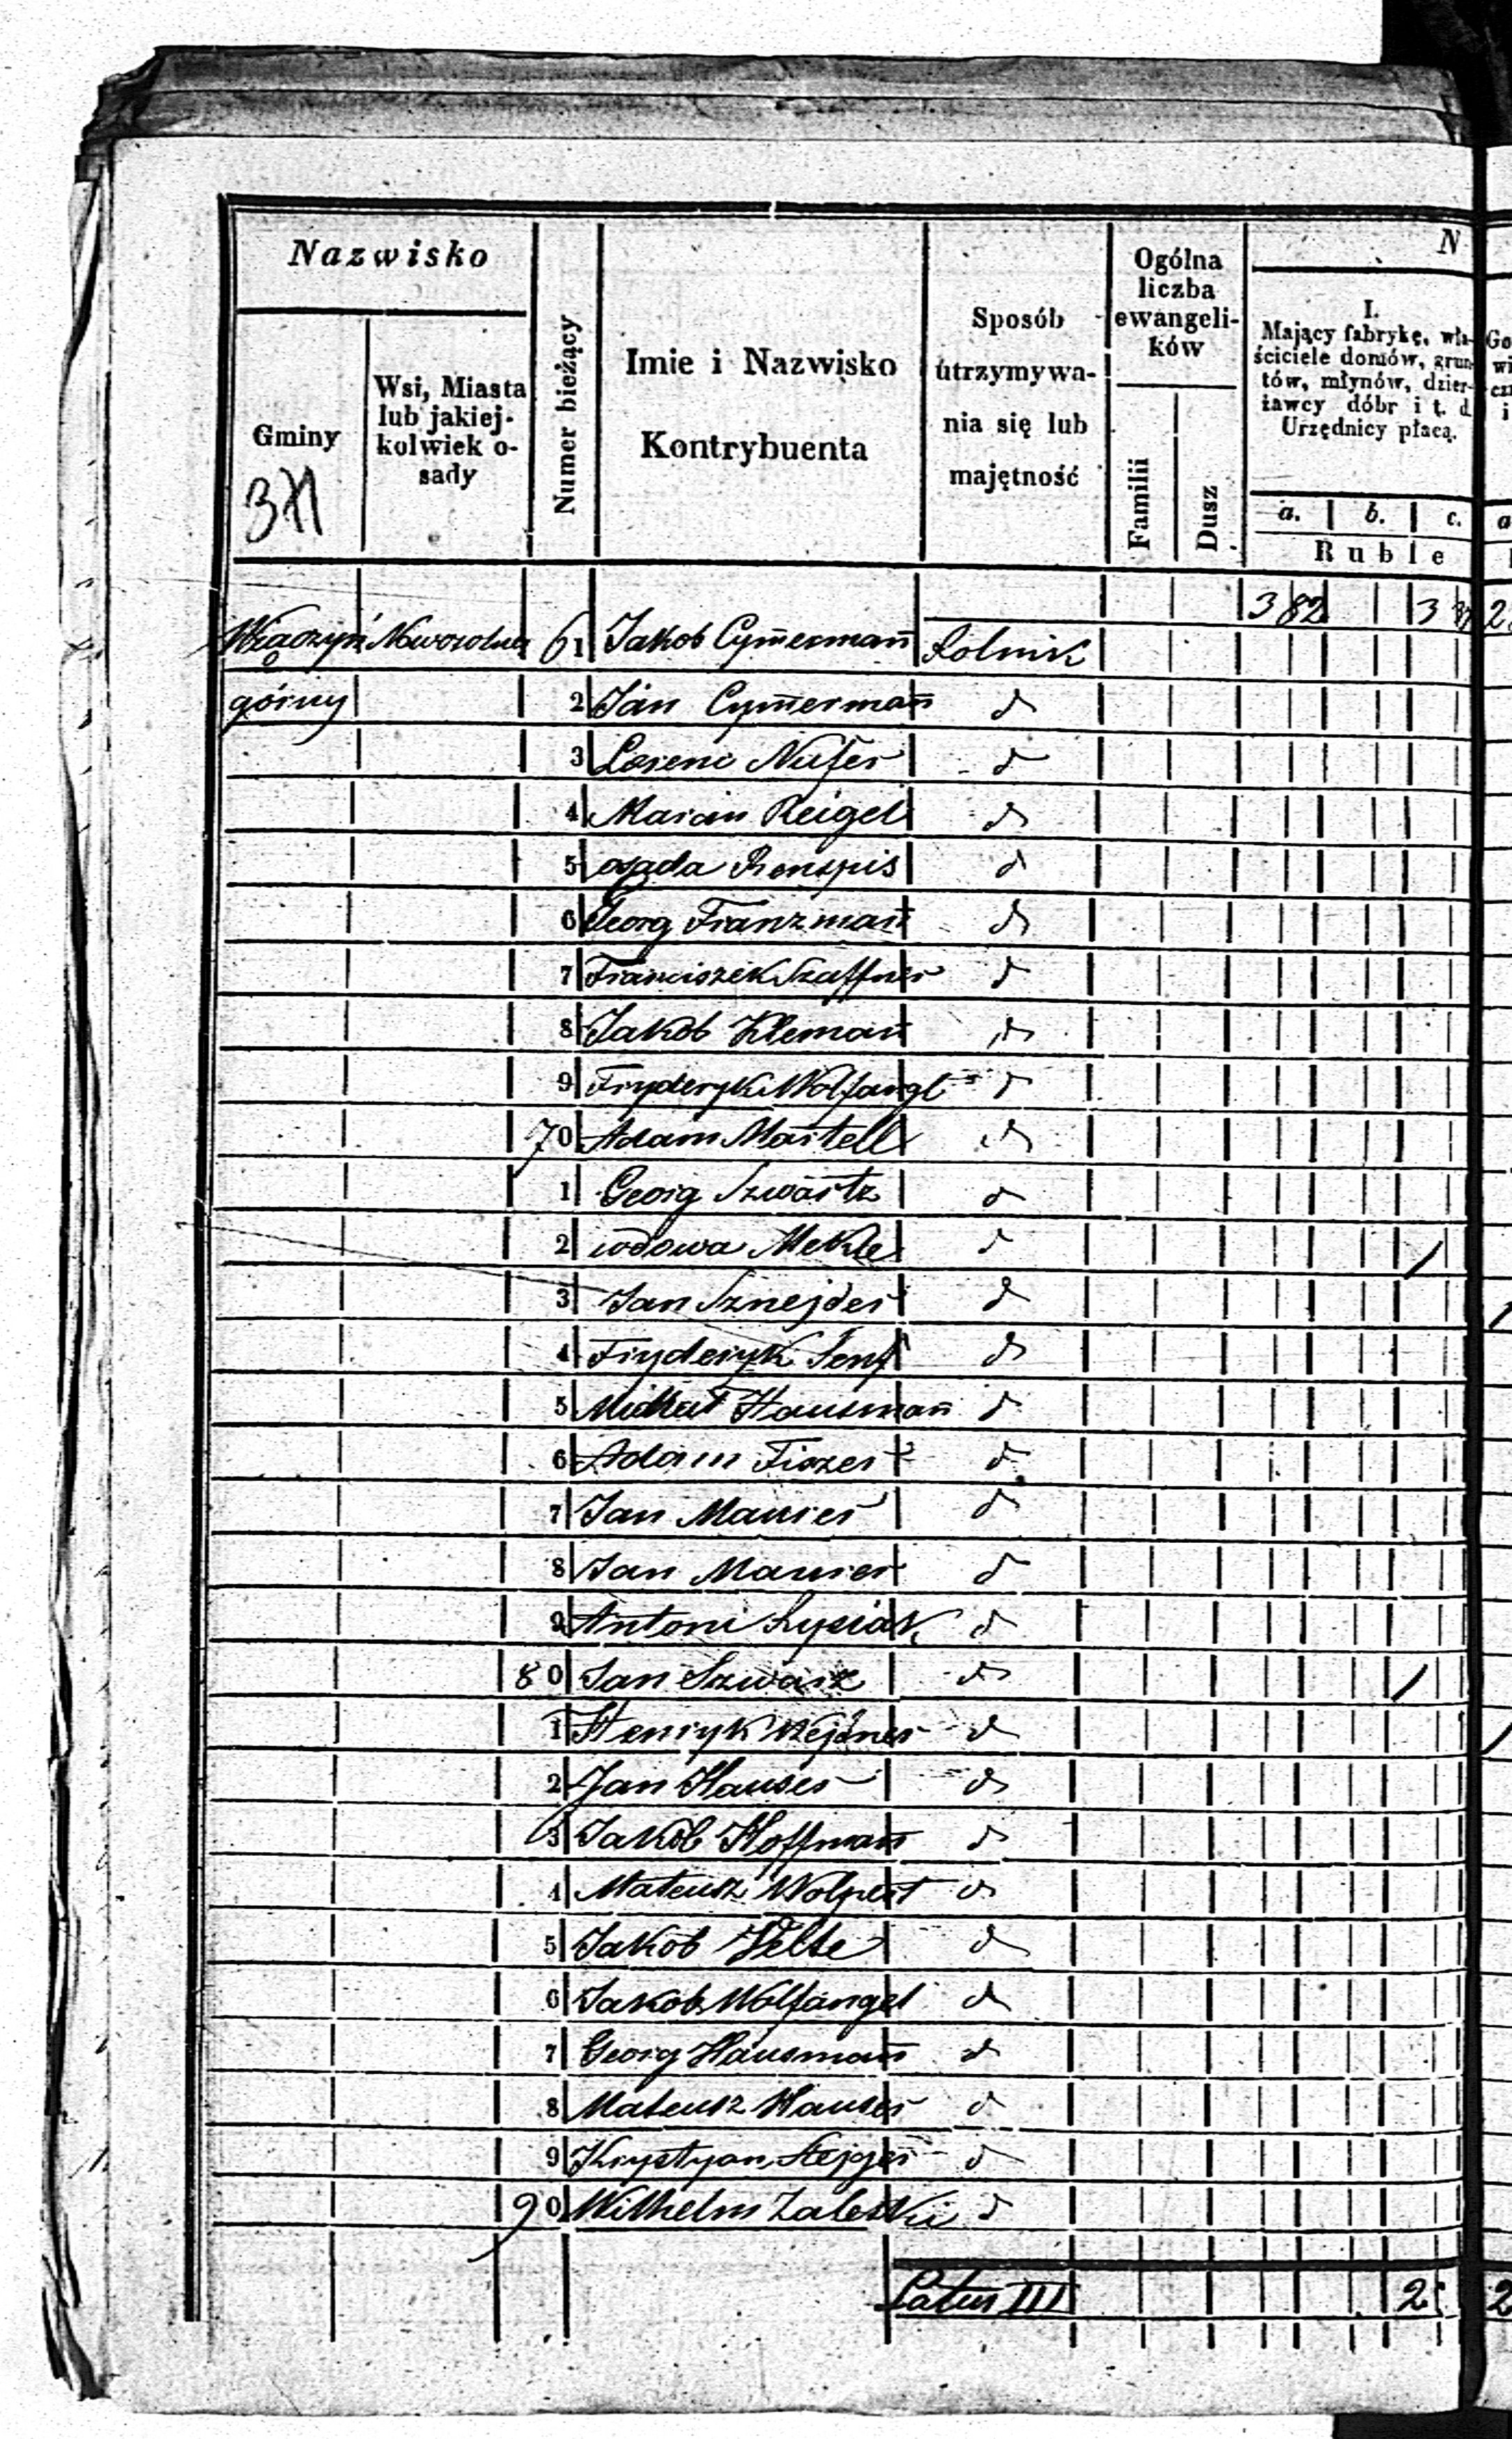 Nazwisko
Gminy
Wsi, Miasta lub jakiej-kolwiek o-sady
Numer bieżący
Imie i Nazwisko Kontrybuenta
Sposób utrzymywa-nia się lub majętność
Ogólna liczba ewangeli-ków
Familii
Dusz
N
I. Mający fabrykę, wła-ściciele domów, grun-tów, młynów, dzier-żawcy dóbr i t. d. Urzędnicy płacą.
a. b. c.
Ruble
3 82 3 2
górny Noworolna 61 Jakob Cym̄erman̄ Rolnik
2 Jan Cym̄erman̄ d
3 Lorenc Nufer d
4 Marcin Reigel d
5 osada Renspis d
6 Georg Franzman̄ d
7 Franciszek Szaffner d
8 Jakob Kleman̄ d
9 Fryderyk Wolfangl d
70 Adam Martell d
1 Georg Szwartz d
2 wdowa Mekle d /
3 Jan Sznejder d
4 Fryderyk Senf d
5 Michał Hausman̄ d
6 Adam Fiszer d
7 Jan Maurer d
8 Jan Maurer d
9 Antoni Łysiak d
80 Jan Szwarz d /
1 Henryk Wejdner d
2 Jan Hauser d
3 Jakób Hoffman̄ d
4 Mateusz Wolpert d
5 Jakob Velte d
6 Jakob Wolfangel d
7 Georg Hausman̄ d
8 Mateusz Hauser d
9 Krystyan Stejger d
90 Wilhelm Zaleski d
Latus III 2 2